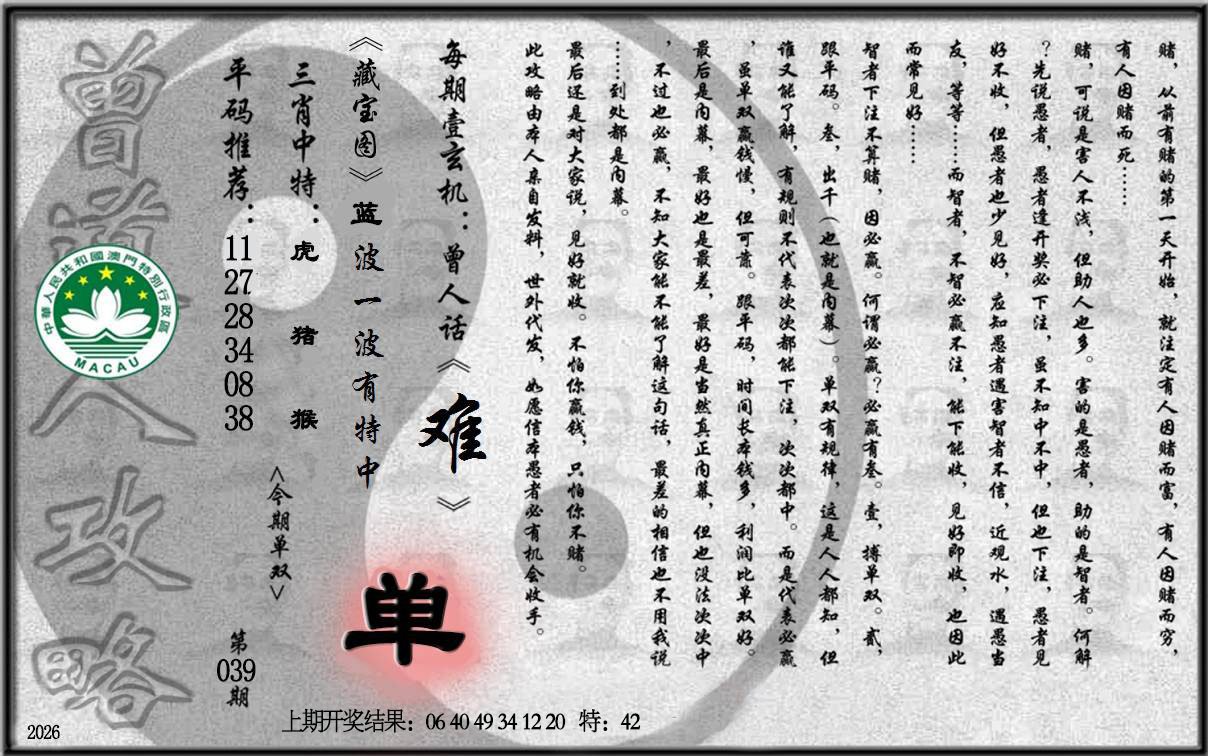 赌，从前有赌的第一天开始，就注定有人因赌而富，有人因赌而穷，
有人因赌而死……
赌，可说是害人不浅，但助人也多。害的是愚者，助的是智者。何解
？先说愚者，愚者逢开奖必下注，虽不知中不中，但也下注，愚者见
好不收，但愚者也少见好，应知愚者遇害智者不信，近观水，遇愚当
友，等等……而智者，不智必赢不注，能下能收，见好即收，也因此
而常见好……
智者下注不算赌，因必赢。何谓必赢？必赢有叁。壹，搏单双。贰，
跟平码。叁，出千（也就是内幕）。单双有规律，这是人人都知，但
谁又能了解，有规则不代表次次都能下注，次次都中。而是代表必赢
，虽单双赢钱慢，但可靠。跟平码，时间长本钱多，利润比单双好。
最后是内幕，最好也是最差，最好是当然真正内幕，但也没法次次中
，不过也必赢，不知大家能不能了解这句话，最差的相信也不用我说
……到处都是内幕。
最后还是对大家说，见好就收。不怕你赢钱，只怕你不赌。
此攻略由本人亲自发料，世外代发，如愿信本愚者必有机会收手。
每期壹玄机：曾人话《难》
《藏宝图》蓝波一波有特中
单
三肖中特：虎 猪 猴
<今期单双>
平码推荐：11 27 28 34 08 38
第039期
曾道人攻略
中華人民共和國澳門特別行政區
MACAU
上期开奖结果：06 40 49 34 12 20 特：42
2026